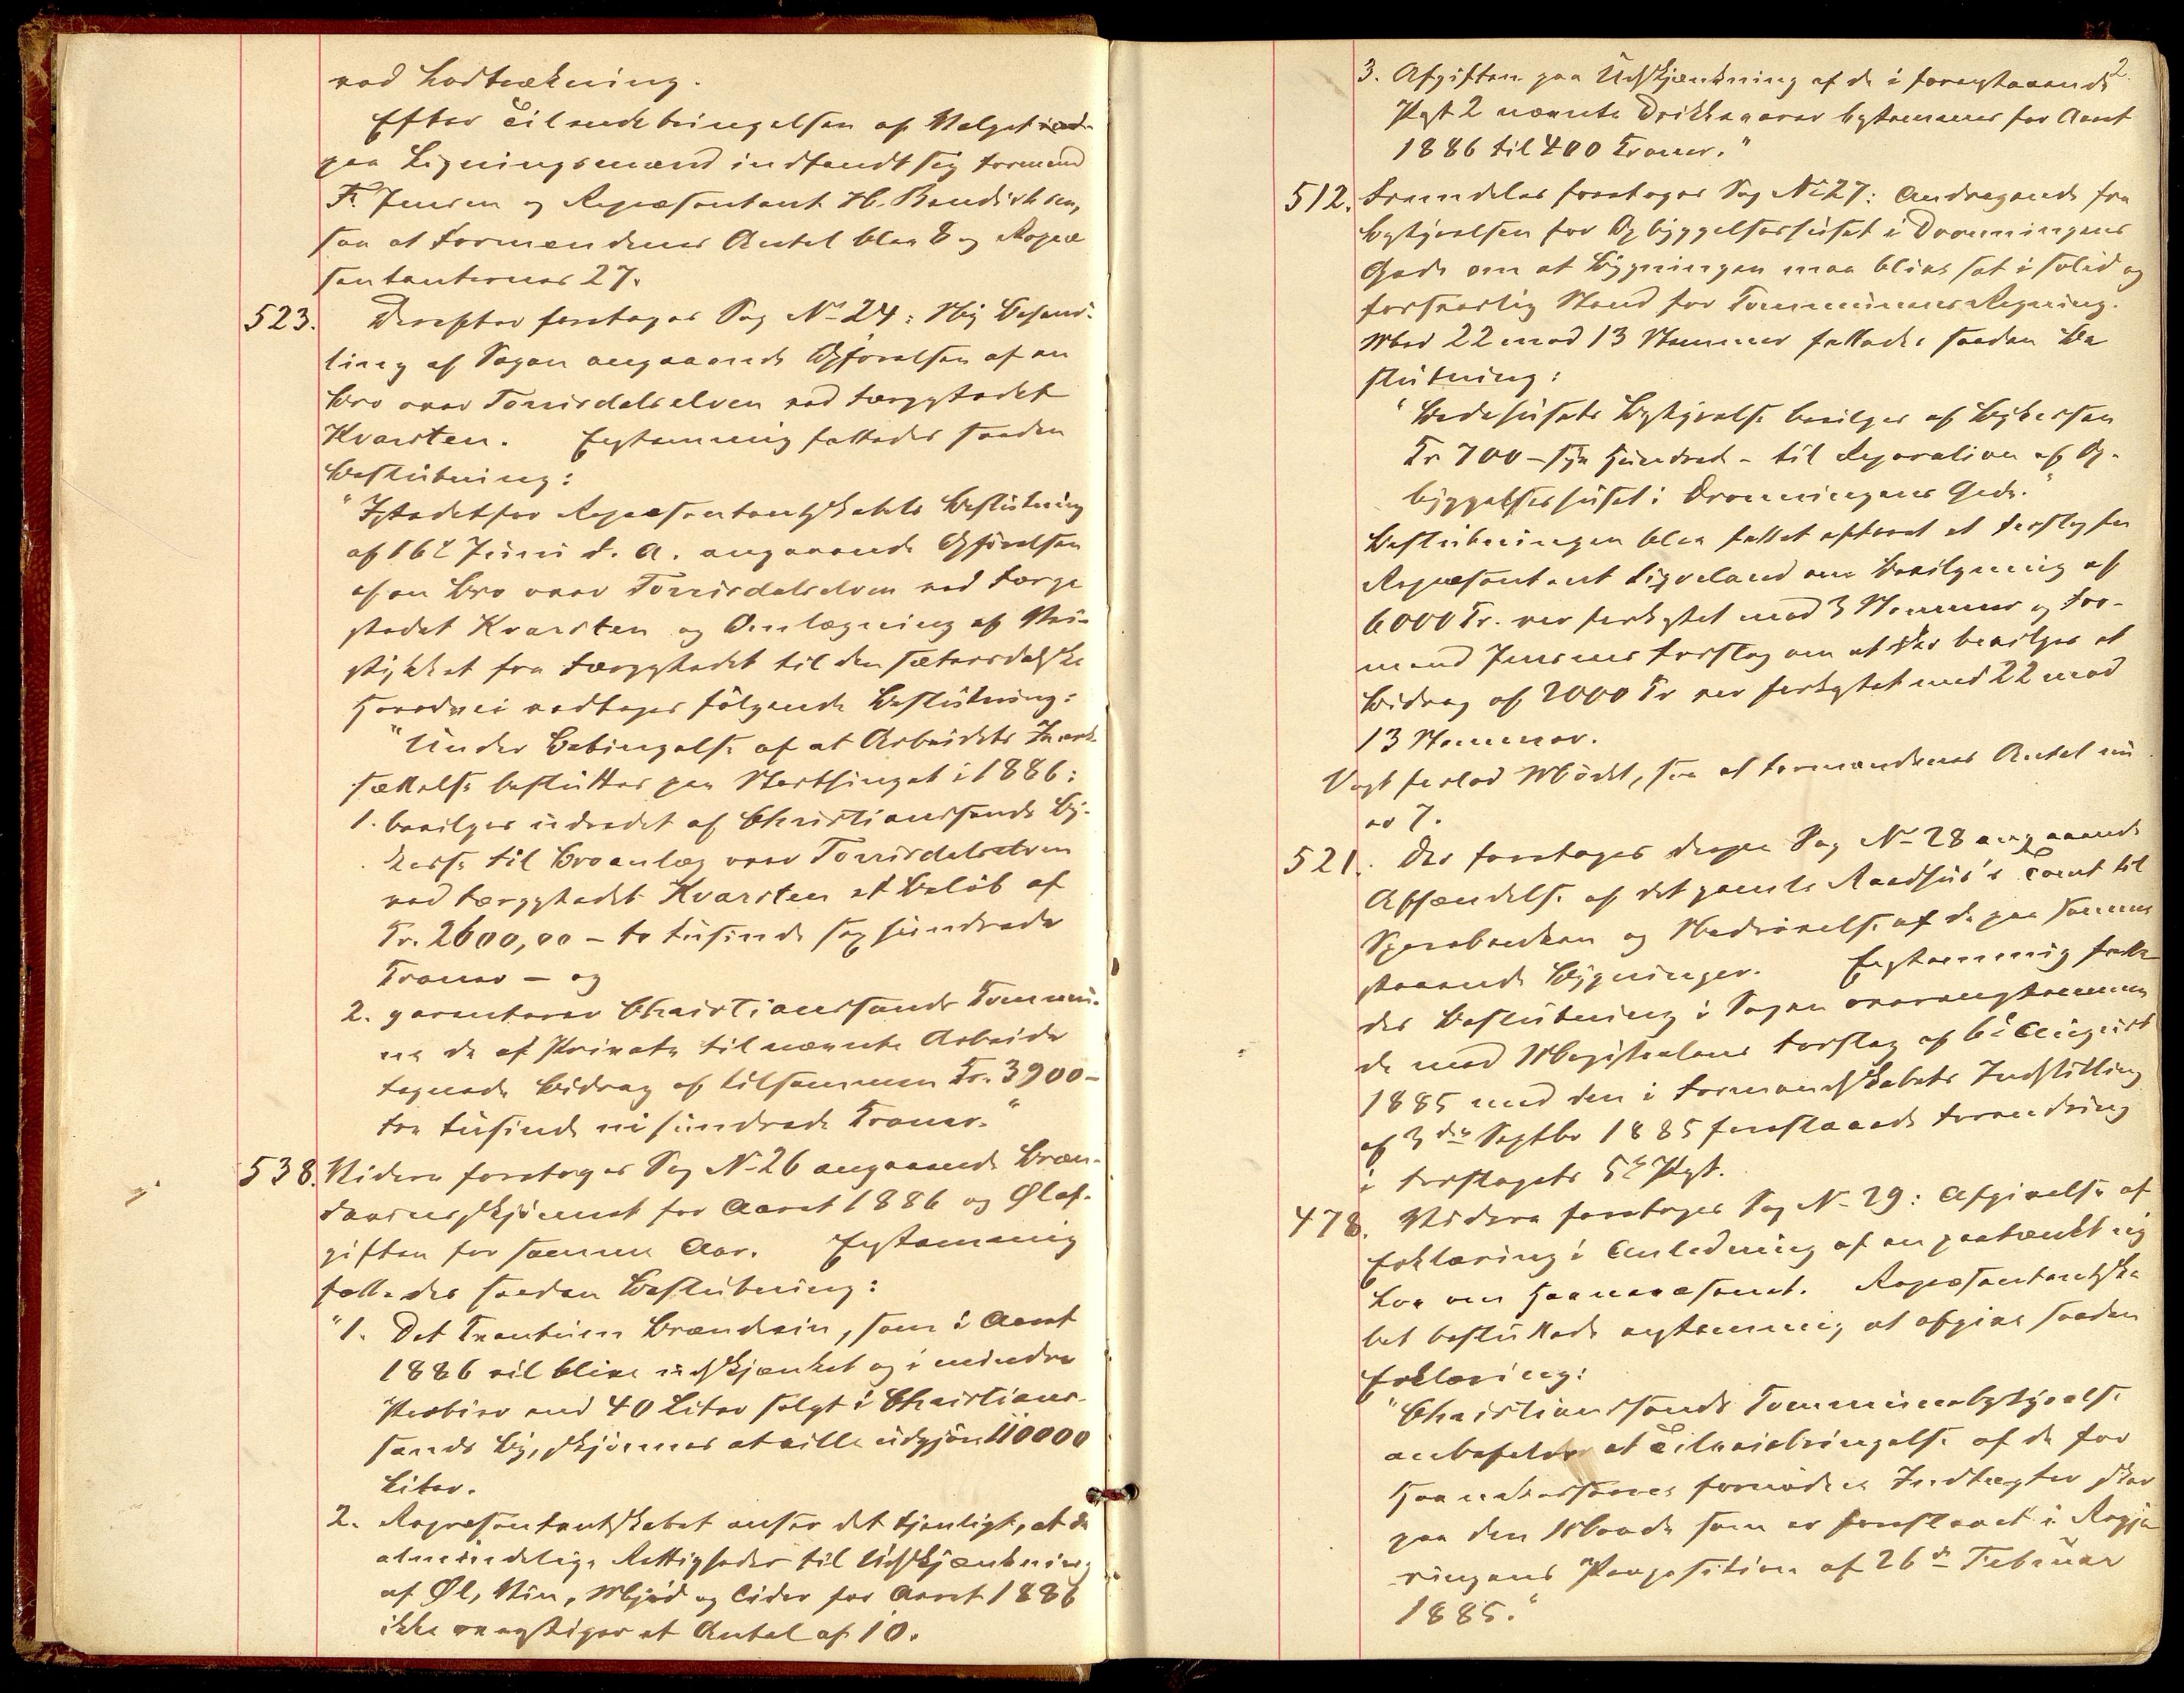 ved Lodtrækning.
Efter Tilendebringelsen af Valget
paa Ligningsmænd indfandt sig Formand
F. Jensen og Repræsentant H. Bendixsen,
saa at Formændenes Antal blev 8 og Repræ
sentanternes 27.
523. Derefter foretoges Sag No 24: Ny Behand-
ling af Sagen angaaende Opførelsen af en
Bro over Torrisdalselven ved Færgestedet
Kvarsten. Enstemmig fattedes saadan
Beslutning:
"Istedetfor Repræsentantskabets Beslutning
af 16de Juni d. A. angaaende Opførelsen
af en Bro over Torrisdalselven ved Færge
stedet Kvarsten og Omlægning af Vei-
stykket fra Færgestedet til den sætersdalske
Hovedvei vedtages følgende Beslutning:
"Under Betingelse af at Arbeidets Iværk-
sættelse besluttes paa Storthinget i 1886:
1. bevilges udredet af Christianssands By-
kasse til Broanlæg over Torrisdalselven
ved Færgestedet Kvarsten et Beløb af
Kr. 2600,00 – to tusinde sex hundrede
Kroner – og
2. garanterer Christianssands Kommu-
ne de af Private til nævnte Arbeide
tegnede Bidrag af tilsammen Kr. 3900 –
tre tusinde ni hundrede Kroner."
538. Videre foretoges Sag No 26 angaaende Bræn-
devinsskjønnet for Aaret 1886 og Ølaf-
giften for samme Aar. Enstemmig
fattedes saadan Beslutning:
"1. Det Kvantum Brændevin, som i Aaret
1886 vil blive udskjænket og i mindre
Partier end 40 Liter solgt i Christians-
sands By, skjønnes at ville udgjøre 110000
Liter.
2. Repræsentantskabet anser det tjenligt, at de
almindelige Rettigheder til Udskjænkning
af Øl, Vin, Mjød og Cider for Aaret 1886
ikke overstiger et Antal af 10.
2.
3. Afgiften paa Udskjænkning af de i foregaaende
Post 2 nævnte Drikkevarer bestemmes for Aaret
1886 til 400 Kroner."
512. Fremdeles foretoges Sag No 27: Andragende fra
Bestyrelsen for Opbyggelseshuset i Dronningens
Gade om at Bygningen maa blive sat i solid og
forsvarlig Stand for Kommunens Regning.
Med 22 mod 13 Stemmer fattedes saadan Be
slutning:
"Bedehusets Bestyrelse bevilges af Bykassen
Kr 700 – syv hundred – til Reparation af Op-
byggelseshuset i Dronningens Gade."
Beslutningen blev fattet efterat et Forslag fra
Repræsentant Ligveland om Bevilgning af
6000 Kr. var forkastet mod 3 Stemmer og For-
mand Jensens Forslag om at der bevilges et
Bidrag af 2000 Kr var forkastet med 22 mod
13 Stemmer.
Vogt forlod Mødet, saa at Formændenes Antal nu
er 7.
521. Der foretoges derpaa Sag No 28 angaaende
Afhændelse af det gamle Raadhus's Tomt til
Sparebanken og Nedrivelse af de paa samme
staaende Bygninger. Enstemmig fatte-
des Beslutning i Sagen overensstemmen
de med Magistratens Forslag af 6te August
1885 med den i Formandskabets Indstilling
af 3die Septbr 1885 foreslaaede Forandring
i Forslagets 5te Post.
478. Videre foretoges Sag No 29: Afgivelse af
Erklæring i Anledning af en paatænkt ny
Lov om Havnevæsenet. Repræsentantska
bet besluttede enstemmig at afgive saadan
Erklæring:
"Christianssands Kommunebestyrelse
anbefaler at Tilveiebringelse af de for
Havnekasserne fornødne Indtægter sker
paa den Maade som er foreslaaet i Regje
ringens Proposition af 26de Februar
1885."